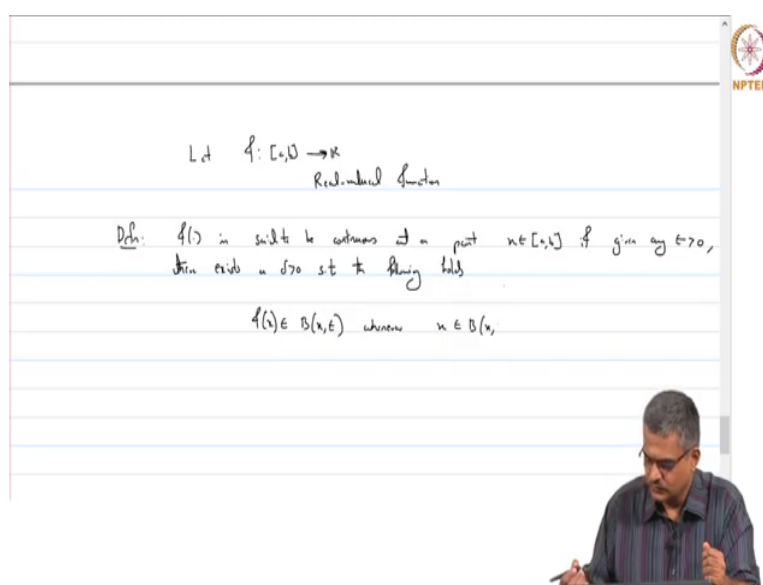 Let f : [a,b] → R
NPTEL
Real-valued function
Defn: f(·) is said to be continuous at a point x ∈ [a,b] if given any ε > 0,
there exists a δ>0 s.t the following holds
f(x) ∈ B(x,ε) whenever x ∈ B(x,